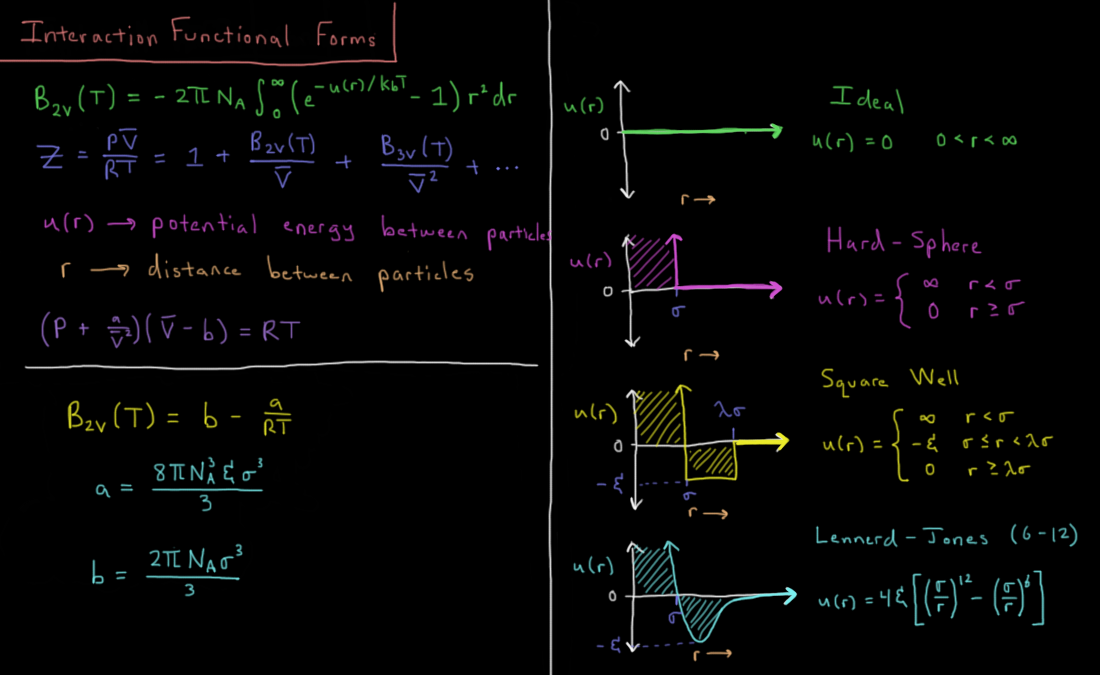 Interaction Functional Forms
B₂ᵥ(T) = -2π N_A ∫₀^∞ (e^(-u(r)/k_bT) - 1) r² dr
Z = PV̄/RT = 1 + B₂ᵥ(T)/V̄ + B₃ᵥ(T)/V̄² + ...
u(r) → potential energy between particles
r → distance between particles
(P + a/V̄²)(V̄ - b) = RT
B₂ᵥ(T) = b - a/RT
a = 8π N_A³ ξ σ³/3
b = 2π N_A σ³/3
Ideal
u(r)
0
r →
u(r) = 0 0 < r < ∞
Hard-Sphere
u(r)
0
σ
r →
u(r) = { ∞ r < σ
0 r ≥ σ
Square Well
u(r)
λσ
0
-ξ
σ
r →
u(r) = { ∞ r < σ
-ξ σ ≤ r < λσ
0 r ≥ λσ
Lennerd-Jones (6-12)
u(r)
0
σ
-ξ
r →
u(r) = 4ξ[(σ/r)¹² - (σ/r)⁶]